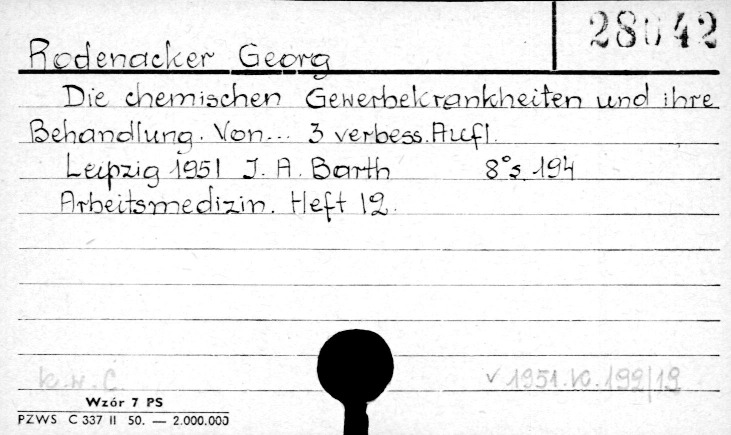 28042
Rodenacker Georg
Die chemischen Gewerbekrankheiten und ihre
Behandlung. Von... 3 verbess. Aufl.
Leipzig 1951 J. A. Barth 8° s. 194
Arbeitsmedizin. Heft 12.
K.N.C. v 1951.K.199/19
Wzór 7 PS
PZWS C 337 II 50. — 2.000.000